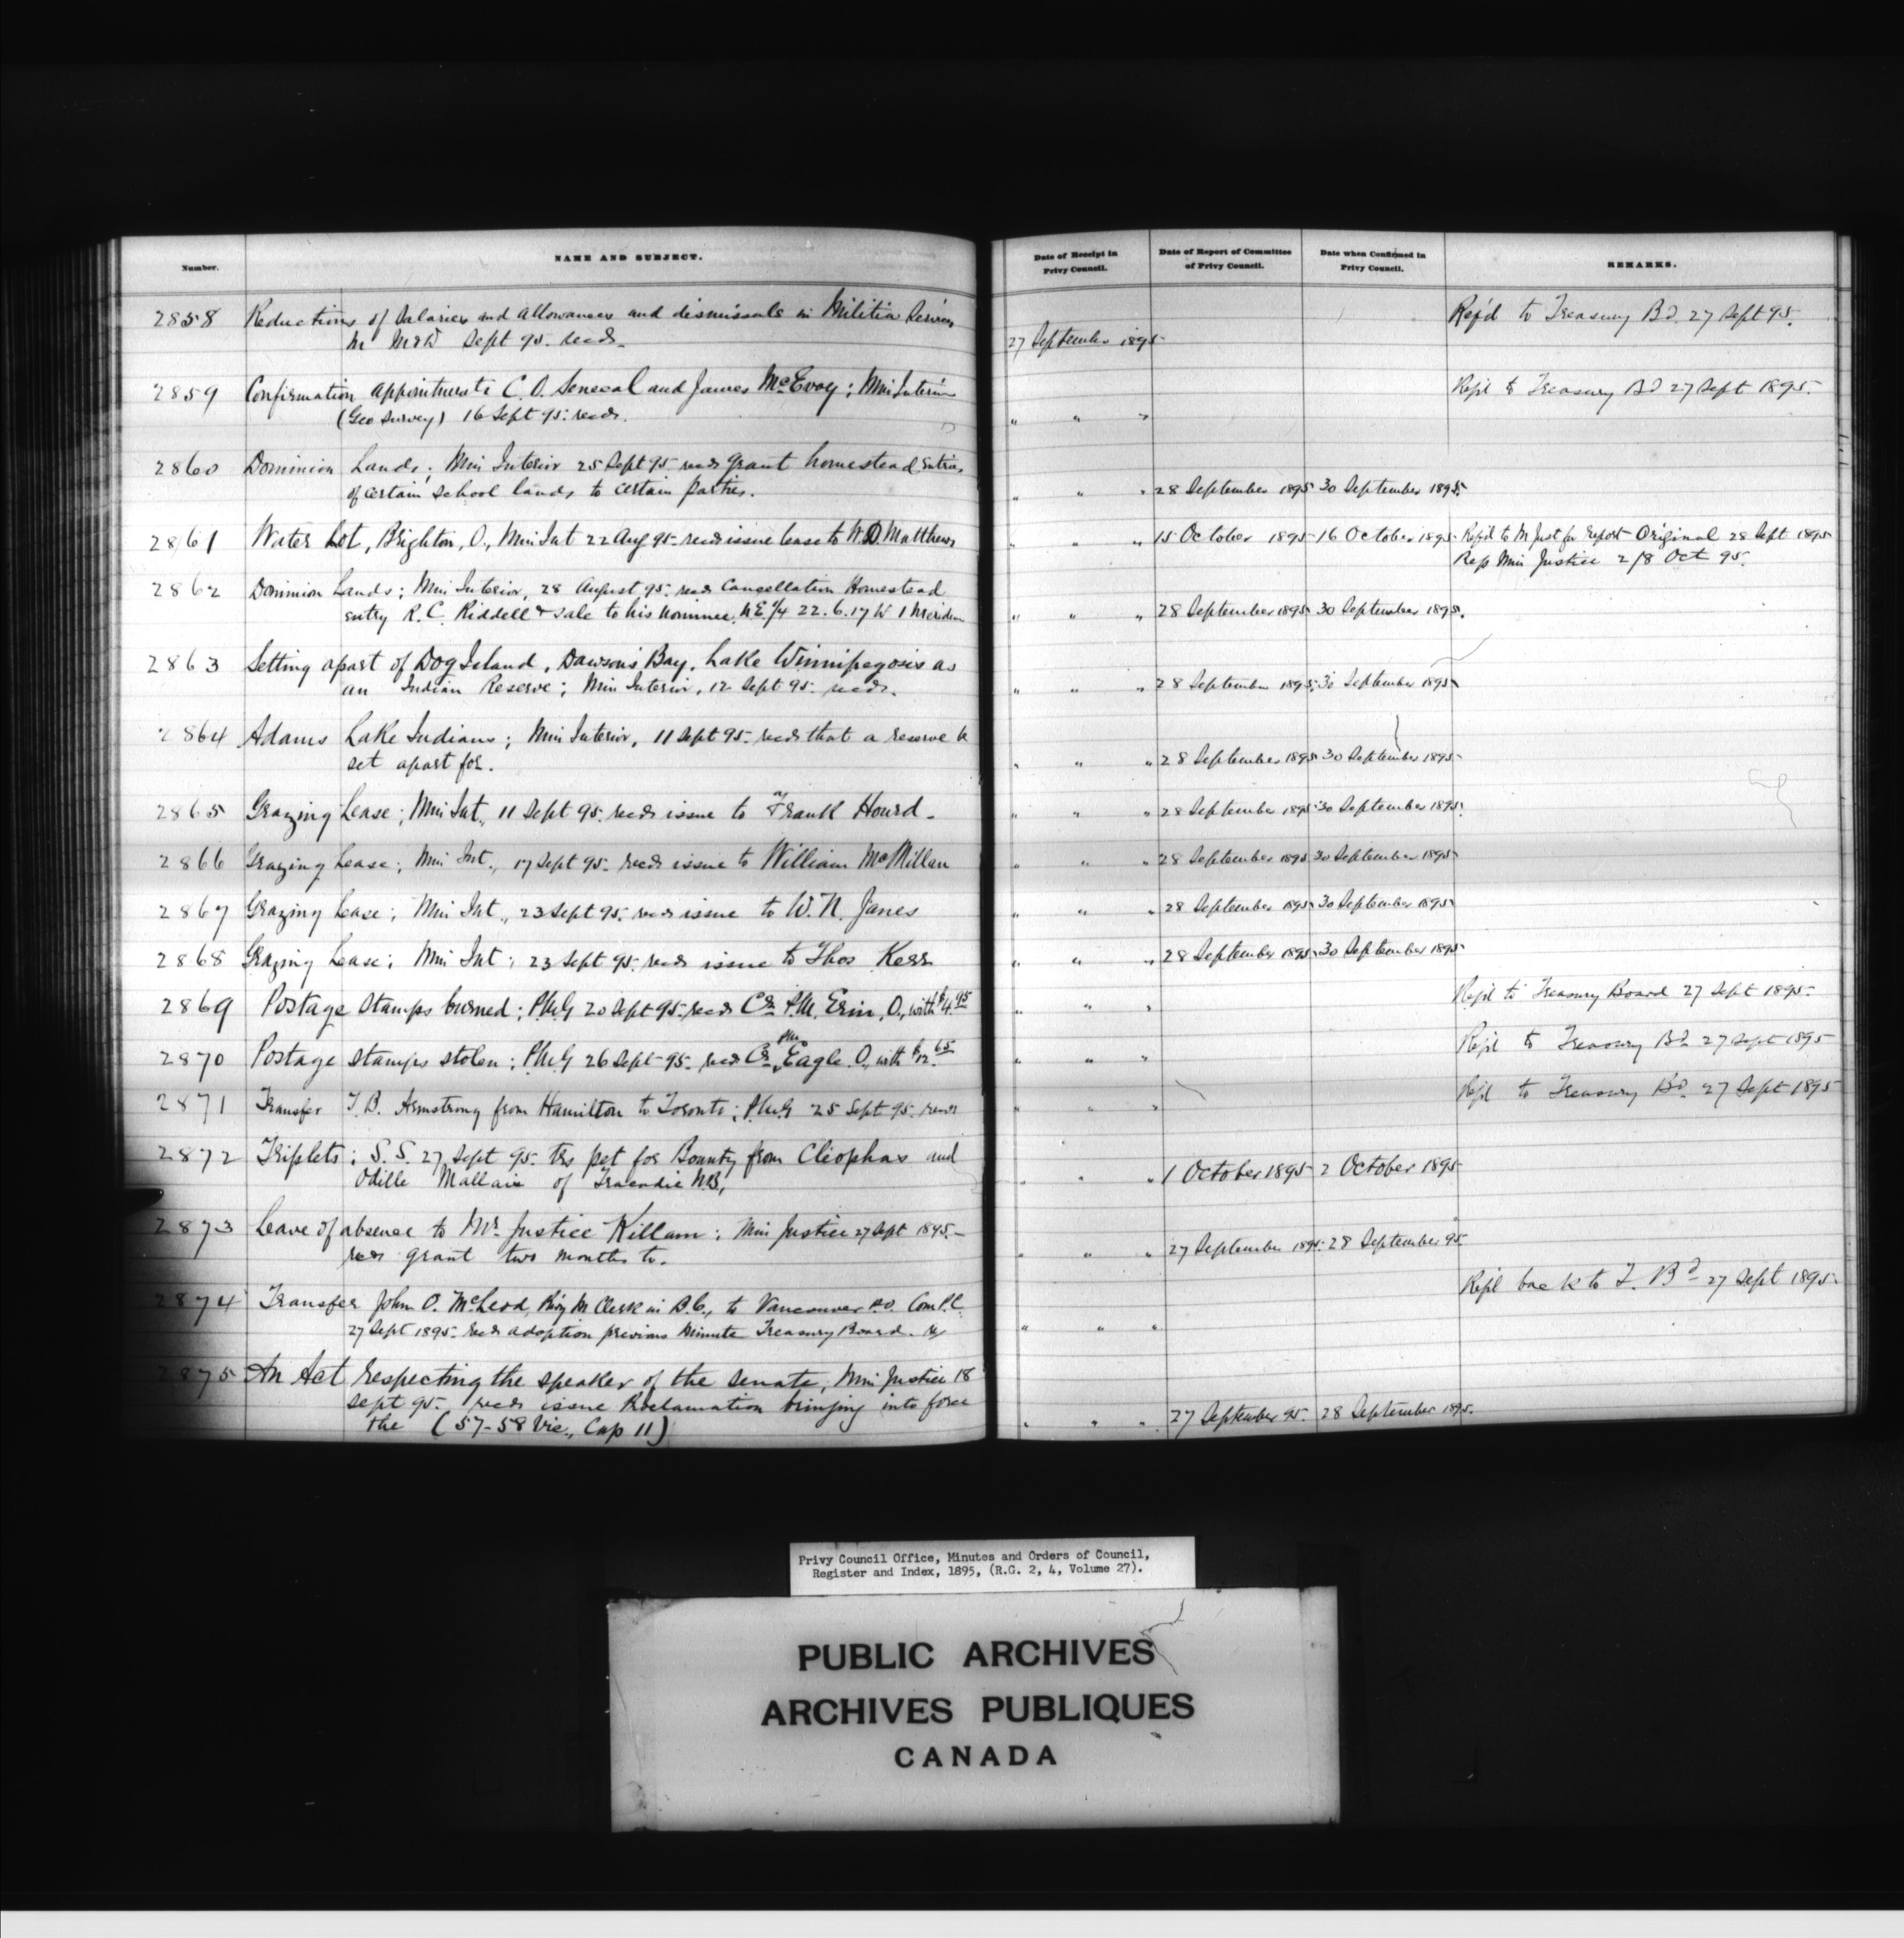 Number.
NAME AND SUBJECT.
Date of Receipt in Privy Council.
Date of Report of Committee of Privy Council.
Date when Confirmed in Privy Council.
REMARKS.
2858 Reductions of Salaries and allowances and dismissals in Militia Services
M M&D Sept 95. recds. 27 September 1895
Refd to Treasury Bd. 27 Sept 95.
2859 Confirmation appointments C. O. Senecal and James McEvoy; Min Interior
(Geo Survey) 16 Sept 95. recds. " " "
Refd to Treasury Bd 27 Sept 1895.
2860 Dominion Lands; Min Interior 25 Sept 95 recds grant homestead entries
of certain school lands to certain parties. " " " 28 September 1895 30 September 1895.
2861 Water Lot, Brighton, O., Min Int 22 Aug 95. recds issue lease to W. D. Matthews " " " 15 October 1895 16 October 1895 Refd to M Just for report Original 28 Sept 1895
Rep Min Justice 2/8 Oct 95.
2862 Dominion Lands; Min Interior, 28 August 95. recds Cancellation Homestead
entry R. C. Riddell & sale to his nominee, N.E. 1/4 22. 6. 17 W 1 Meridian " " " 28 September 1895 30 September 1895.
2863 Setting apart of Dog Island, Dawson's Bay, Lake Winnipegosis as
an Indian Reserve; Min Interior, 12 Sept 95. recds. " " " 28 September 1895 30 September 1895
2864 Adams Lake Indians; Min Interior, 11 Sept 95. recds that a reserve be
set apart for. " " " 28 September 1895 30 September 1895
2865 Grazing Lease; Min Int., 11 Sept 95. recds issue to Frank Hourd. " " " 28 September 1895 30 September 1895.
2866 Grazing Lease; Min Int., 17 Sept 95. recds issue to William McMillan " " " 28 September 1895 30 September 1895
2867 Grazing Lease; Min Int., 23 Sept 95. recds issue to W. N. Janes " " " 28 September 1895 30 September 1895
2868 Grazing Lease; Min Int; 23 Sept 95. recds issue to Thos Kerr " " " 28 September 1895 30 September 1895
2869 Postage stamps burned; P.M.G 20 Sept 95. recds Cr P.M. Erin, O., with $4.95 " " "
Refd to Treasury Board 27 Sept 1895.
2870 Postage stamps stolen; P.M.G 26 Sept 95. recds Cr PM Eagle. O., with $12.65 " " "
Refd to Treasury Bd 27 Sept 1895
2871 Transfer T. B. Armstrong from Hamilton to Toronto; P.M.G 25 Sept 95. recds " " "
Refd to Treasury Bd. 27 Sept 1895
2872 Triplets; S. S. 27 Sept 95. trs pet for Bounty from Cleophas and
Odille Mallais of Tracadie NB, " " " 1 October 1895 2 October 1895
2873 Leave of absence to Mr. Justice Killam; Min Justice 27 Sept 1895.
recds grant two months to. " " " 27 September 1895 28 September 95
2874 Transfer John O. McLeod, Rwy M Clerk in B.C., to Vancouver P.O. Com P.C.
27 Sept 1895. recds adoption previous minute Treasury Board. re " " "
Refd back to T. Bd 27 Sept 1895
2875 An Act respecting the speaker of the senate, Min Justice 18
Sept 95. recds issue Proclamation bringing into force
the (57-58 Vic., Cap 11) " " " 27 September 95. 28 September 1895.
Privy Council Office, Minutes and Orders of Council,
Register and Index, 1895, (R.G. 2, 4, Volume 27).
PUBLIC ARCHIVES
ARCHIVES PUBLIQUES
CANADA